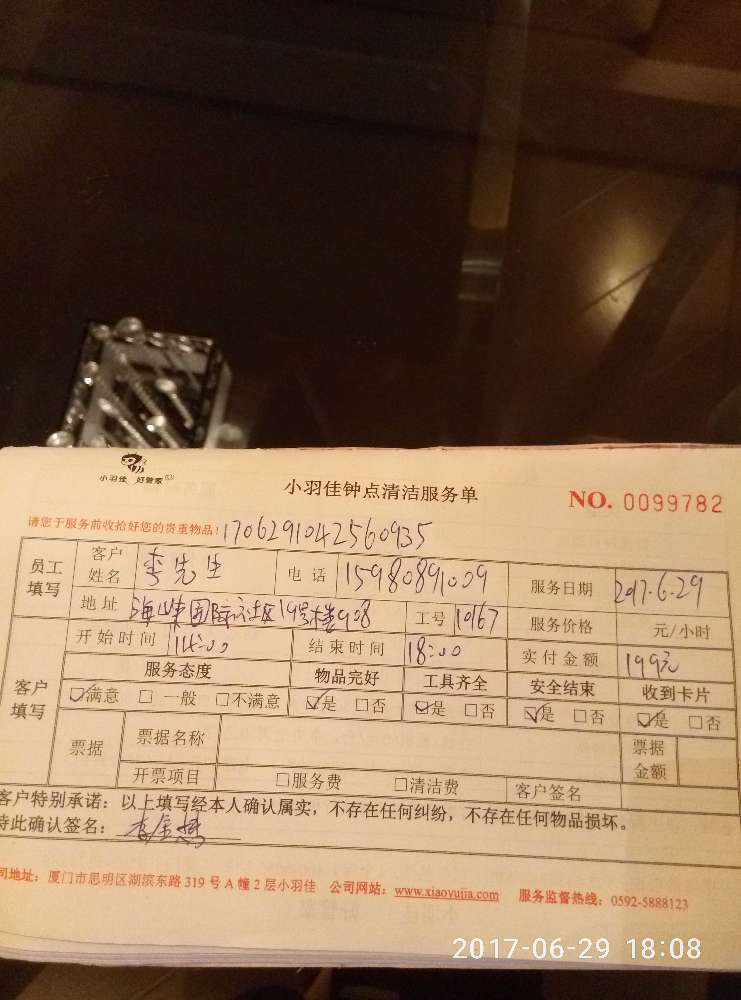 小羽佳 好管家
小羽佳钟点清洁服务单
NO. 0099782
请您于服务前收拾好您的贵重物品！1706291042560935
员工填写 客户姓名 李先生 电话 15980891009 服务日期 2017.6.29
地址 海峡国际社区19号楼908 工号 10167 服务价格 元/小时
客户填写 开始时间 14:00 结束时间 18:00 实付金额 199元
服务态度 物品完好 工具齐全 安全结束 收到卡片
☑满意 □一般 □不满意 ☑是 □否 ☑是 □否 ☑是 □否 ☑是 □否
票据 票据名称 票据金额
开票项目 □服务费 □清洁费 客户签名
客户特别承诺：以上填写经本人确认属实，不存在任何纠纷，不存在任何物品损坏。
特此确认签名：
司地址：厦门市思明区湖滨东路 319 号 A 幢 2 层小羽佳 公司网站：www.xiaoyujia.com 服务监督热线：0592-5888123
2017-06-29 18:08